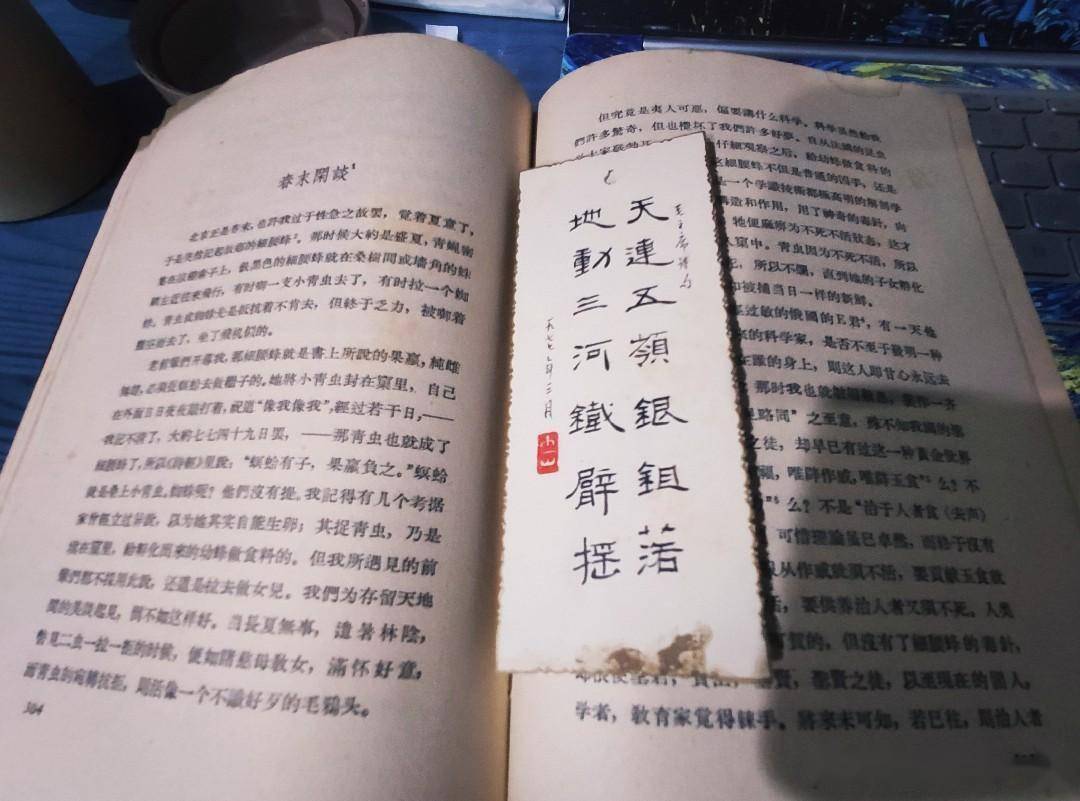 春末閑談¹
北京正是春末，也許我过于性急之故罢，覚着夏意了，
于是突然記起故鄉的細腰蜂²。那时候大約是盛夏，青蝇密
集在凉棚索子上，铁黑色的細腰蜂就在桑樹間或墙角的蛛
網左近往来飛行，有时啣一支小青虫去了，有时拉一个蜘
蛛。青虫或蜘蛛先是抵抗着不肯去，但終于乏力，被啣着
騰空而去了，坐了飛机似的。
老前輩們开导我，那細腰蜂就是書上所說的果蠃，純雌
無雄，必須捉螟蛉去做繼子的。她將小青虫封在窠里，自己
在外面日日夜夜敲打着，祝道“像我像我”，經过若干日，——
我記不清了，大約七七四十九日罢，——那青虫也就成了
細腰蜂了，所以《詩經》里說：“螟蛉有子，果蠃負之。”螟蛉
就是桑上小青虫。蜘蛛呢？他們沒有提。我記得有几个考据
家曾經立过异說，以为她其实自能生卵；其捉青虫，乃是
填在窠里，給孵化出来的幼蜂做食料的。但我所遇見的前
輩們都不採用此說，还道是拉去做女兒。我們为存留天地
間的美談起見，倒不如这样好。当長夏無事，遣暑林陰，
瞥見二虫一拉一拒的时候，便如睹慈母敎女，滿怀好意，
而青虫的宛轉抗拒，則活像一个不識好歹的毛鴉头。
304
毛主席詩句
天連五嶺銀鉏落
地動三河鐵臂摇
一九七 年三月
但究竟是夷人可惡，偏要講什么科学。科学虽然給我
們許多驚奇，但也攪坏了我們許多好夢。自从法國的昆虫
仔細观察之后，給幼蜂做食料的
細腰蜂不但是普通的凶手，还是
一个学識技術都極高明的解剖学
構造和作用，用了神奇的毒針，向
牠便麻痹为不死不活狀态，这才
窠中。青虫因为不死不活，所以
，所以不爛，直到她的子女孵化
和被捕当日一样的新鮮。
过敏的俄國的E君⁴，有一天他
的科学家，是否不至于發明一种
在誰的身上，則这人即甘心永远去
那时我也就皺眉
見略同”之至意，殊不知我國的
之徒，却早已有过这一种黃金世界
，唯辟作威，唯辟玉食”⁵么？不
”⁶么？不是“治于人者食（去声）
可惜理論虽已卓然，而終于沒有
从作威就須不活，要貢献玉食就
，要供养治人者又須不死。人类
可賀的，但沒有了細腰蜂的毒針，
聖賢之徒，以至現在的闊人，
学者，敎育家覚得棘手。將来未可知，若已往，則治人者